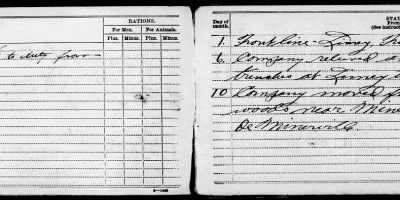 RATIONS.
For Men. For Animals.
Plus. Minus. Plus. Minus.
to duty from -
3-1662
Day of month. STAT
From
(See instruct
1. Front line - Limey
6. Company relieved a
trenches at Limey
10 Company moved f
woods near Mine
De Minorville